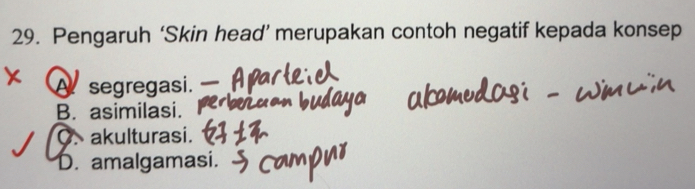 29. Pengaruh ‘Skin head’ merupakan contoh negatif kepada konsep
A. segregasi. — Aparteid
B. asimilasi. perbezaan budaya akomodasi -
C. akulturasi. 好坏
D. amalgamasi. → campur